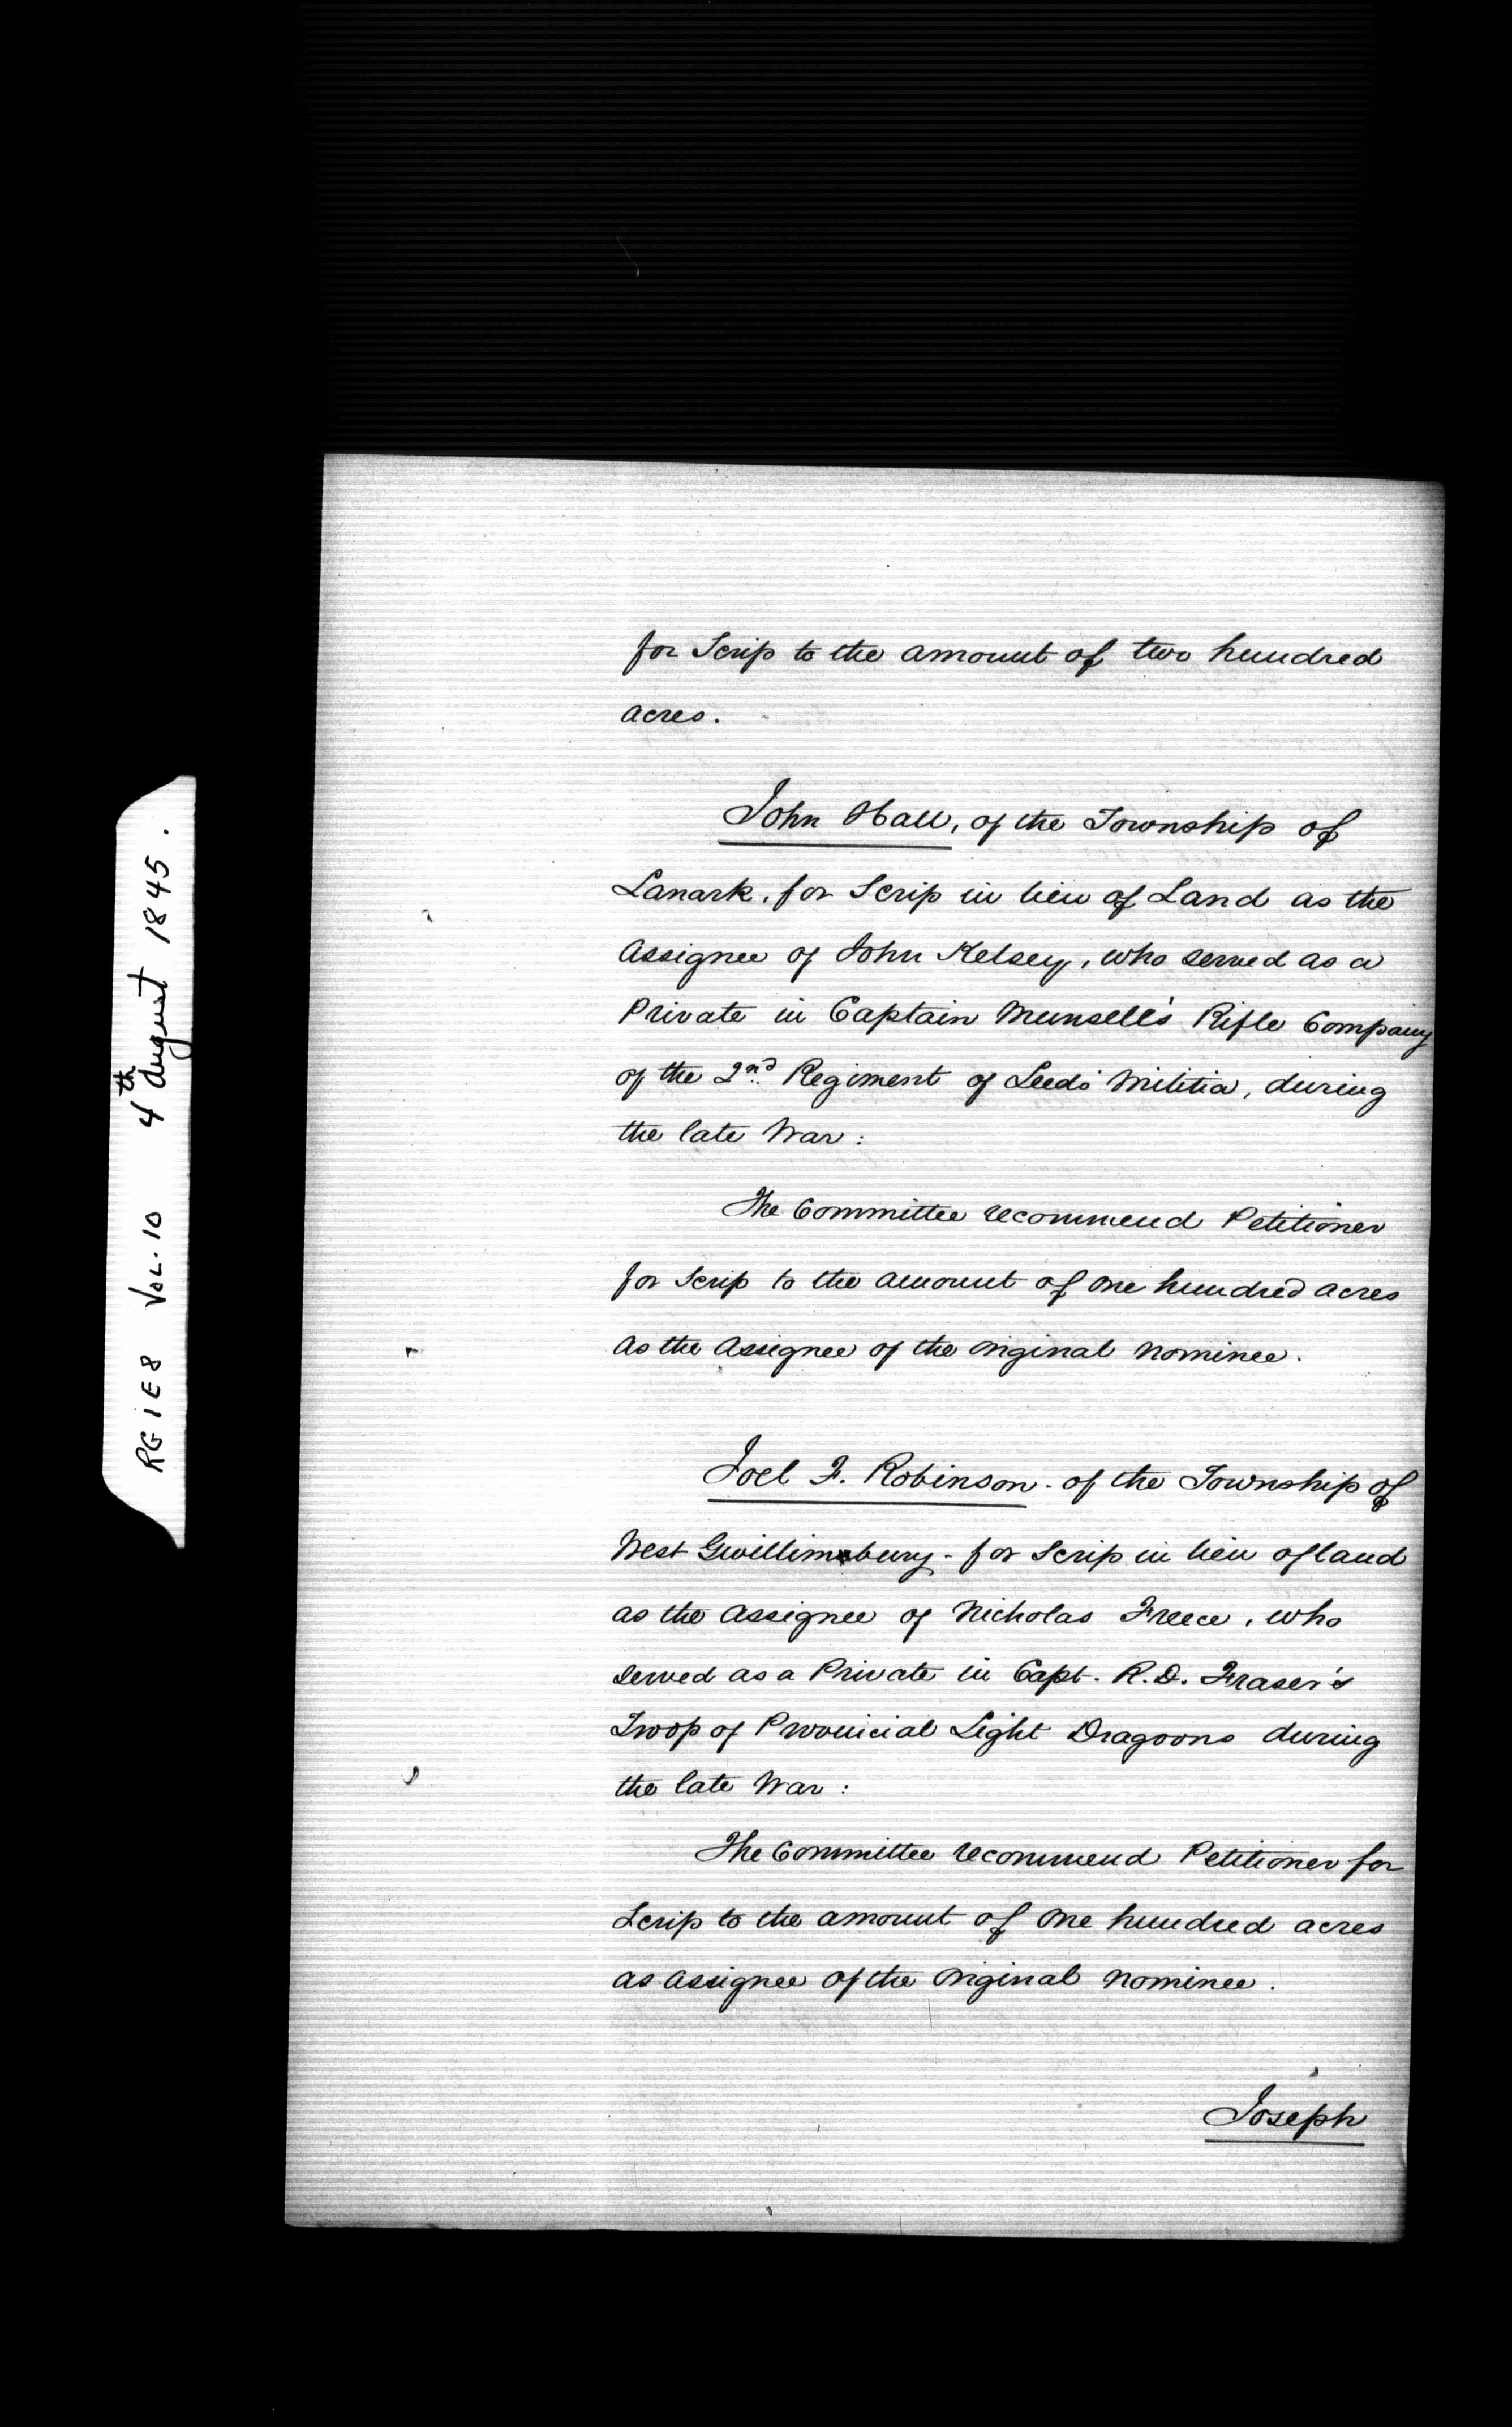 RG 1 E 8 Vol. 10 4th August 1845.
for Scrip to the amount of two hundred
acres.
John Hall, of the Township of
Lanark, for Scrip in lieu of Land as the
Assignee of John Kelsey, who served as a
Private in Captain Munsell's Rifle Company
of the 2nd Regiment of Leeds Militia, during
the late War:
The Committee recommend Petitioner
for Scrip to the amount of one hundred acres
as the Assignee of the original nominee.
Joel F. Robinson - of the Township of
West Gwillimbury - for Scrip in lieu of land
as the assignee of Nicholas Freece, who
served as a Private in Capt. R. D. Fraser's
Troop of Provincial Light Dragoons during
the late War:
The Committee recommend Petitioner for
Scrip to the amount of one hundred acres
as assignee of the original nominee.
Joseph